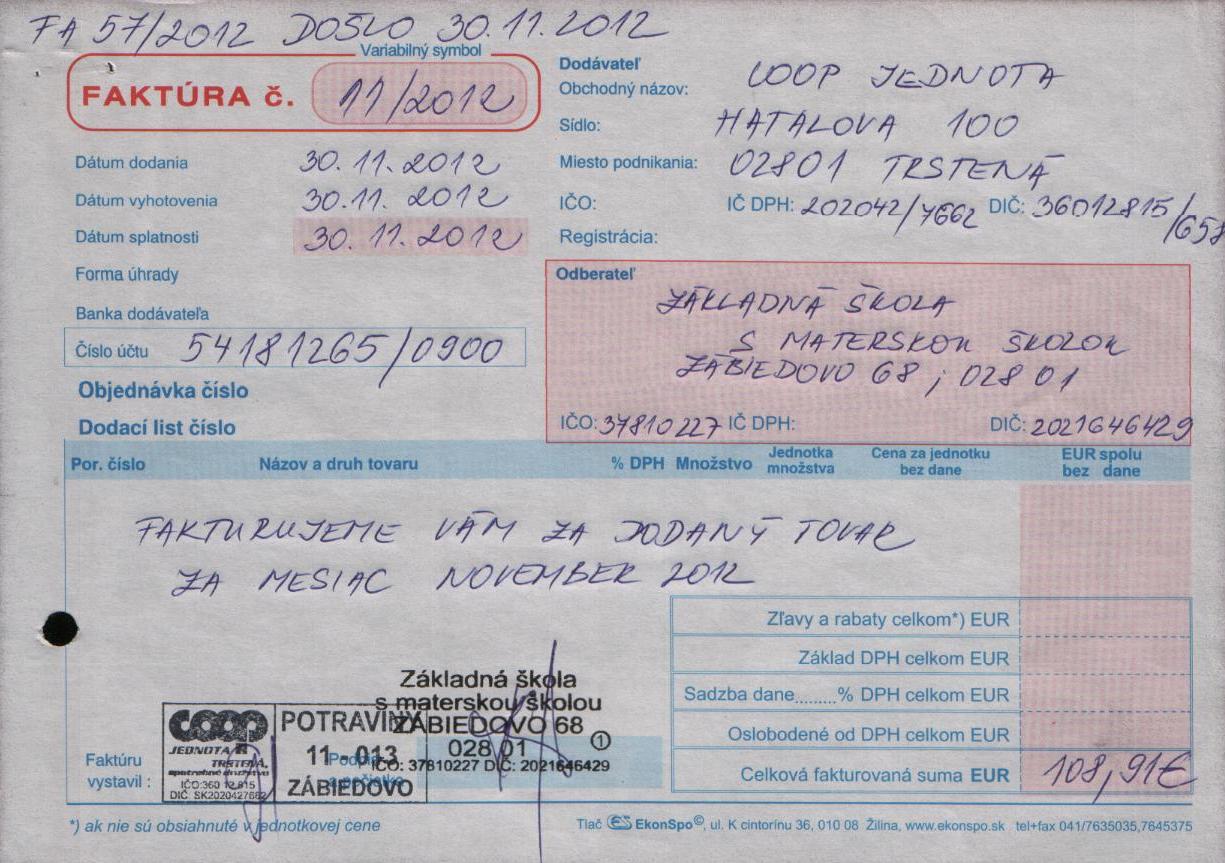 FA 57/2012 DOŠLO 30.11.2012
Variabilný symbol
FAKTÚRA č. 11/2012
Dátum dodania 30.11.2012
Dátum vyhotovenia 30.11.2012
Dátum splatnosti 30.11.2012
Forma úhrady
Banka dodávateľa
Číslo účtu 54181265/0900
Objednávka číslo
Dodací list číslo
Dodávateľ
Obchodný názov: COOP JEDNOTA
Sídlo: HATALOVA 100
Miesto podnikania: 02801 TRSTENÁ
IČO: IČ DPH: 202042/7662 DIČ: 36012815/658
Registrácia:
Odberateľ
ZÁKLADNÁ ŠKOLA
S MATERSKOU ŠKOLOU
ZÁBIEDOVO 68, 028 01
IČO: 37810227 IČ DPH: DIČ: 2021646429
Por. číslo Názov a druh tovaru % DPH Množstvo Jednotka množstva Cena za jednotku bez dane EUR spolu bez dane
FAKTURUJEME VÁM ZA DODANÝ TOVAR
ZA MESIAC NOVEMBER 2012
Zľavy a rabaty celkom*) EUR
Základ DPH celkom EUR
Sadzba dane.......% DPH celkom EUR
Oslobodené od DPH celkom EUR
Celková fakturovaná suma EUR 108,91€
Základná škola
s materskou školou
ZÁBIEDOVO 68
028 01 1
IČO: 37810227 DIČ: 2021646429
Faktúru
vystavil :
COOP
JEDNOTA
TRSTENÁ,
spotrebné družstvo
IČO:360 12 815
DIČ: SK2020427662
POTRAVINY
11 - 013
ZÁBIEDOVO
Podpis
a pečiatka
*) ak nie sú obsiahnuté v jednotkovej cene
Tlač ES EkonSpo©, ul. K cintorínu 36, 010 08 Žilina, www.ekonspo.sk tel+fax 041/7635035,7645375